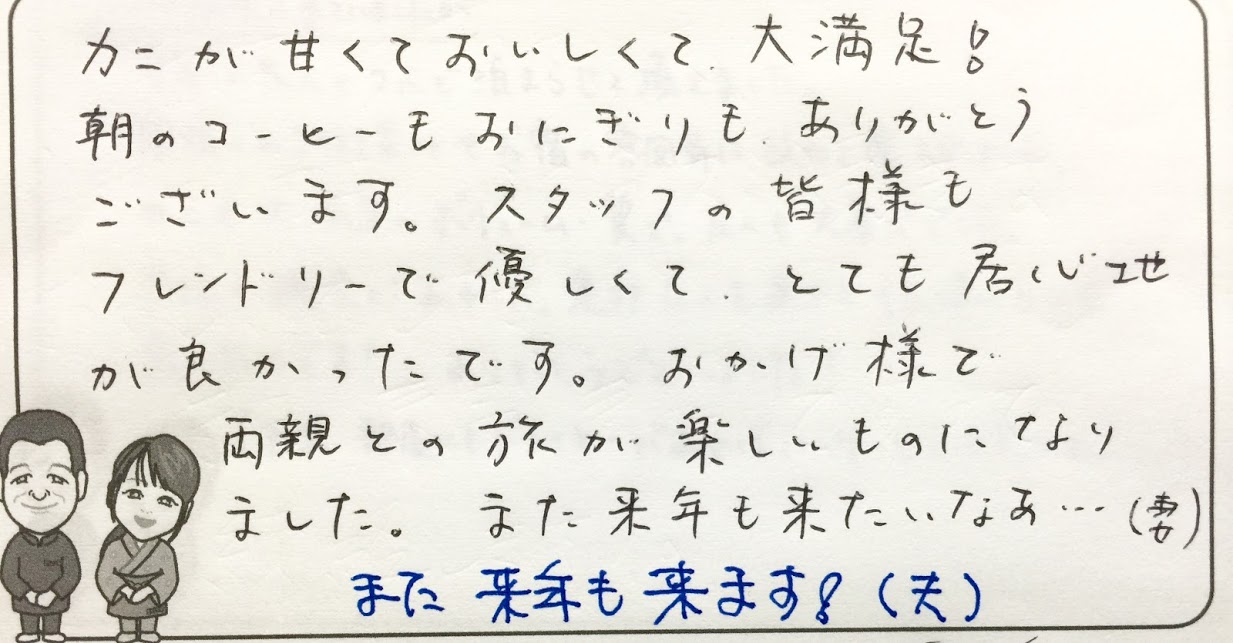 カニが甘くておいしくて、大満足!
朝のコーヒーもおにぎりも、ありがとう
ございます。スタッフの皆様も
フレンドリーで優しくて、とても居心地
が良かったです。おかげ様で
両親との旅が楽しいものになり
ました。また来年も来たいなあ…(妻)
また来年も来ます!(夫)